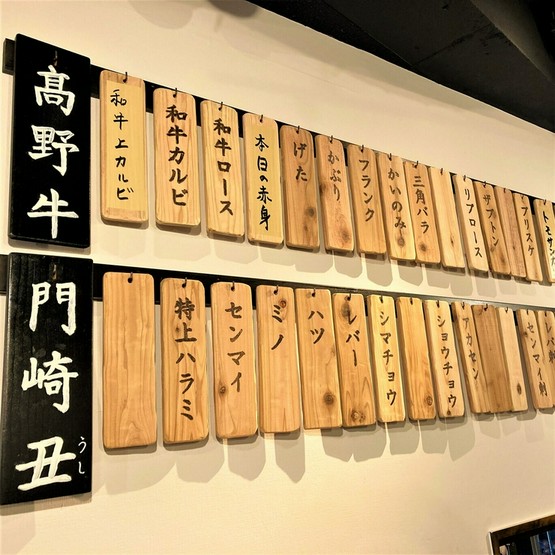 髙野牛
和牛上カルビ
和牛カルビ
和牛ロース
本日の赤身
げた
かぶり
フランク
かいのみ
三角バラ
リブロース
ザブトン
ブリスケ
門崎丑
うし
特上ハラミ
センマイ
ミノ
ハツ
レバー
シマチョウ
ショウチョウ
アカセン
センマイ刺